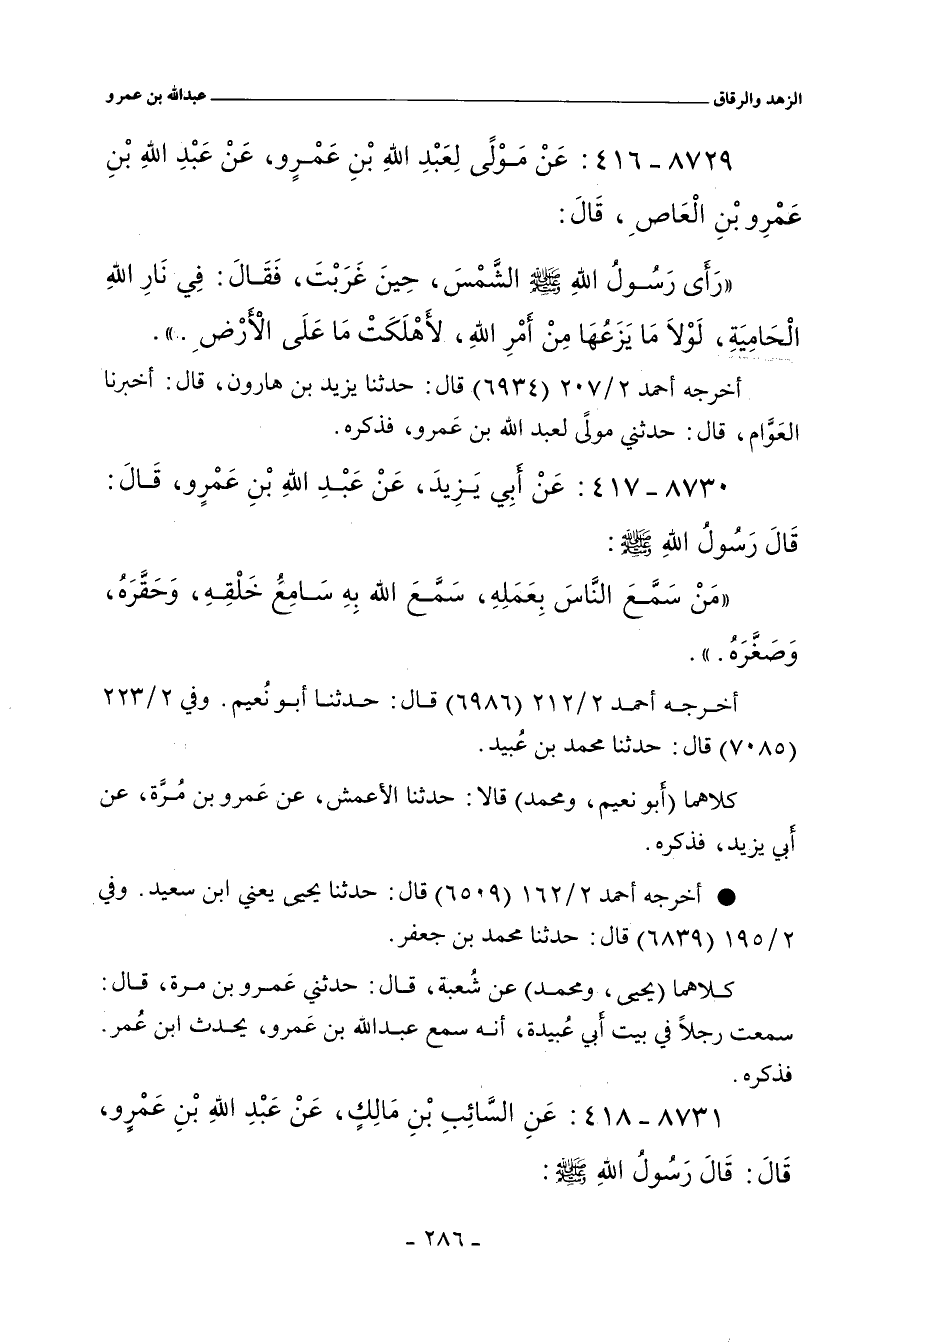 الزهد والرقاق ــــــــــــــــــــــــــــــــــــــــ عبدالله بن عمرو
٨٧٢٩ ـ ٤١٦ : عَنْ مَـوْلًى لِعَبْدِ اللهِ بْنِ عَمْـرٍو، عَنْ عَبْدِ اللهِ بْنِ
عَمْرِو بْنِ الْعَاصِ، قَالَ :
«رَأَى رَسُـولُ اللهِ ﷺ الشَّمْسَ، حِينَ غَرَبْتَ، فَقَـالَ : فِي نَارِ اللهِ
الْحَامِيَةِ، لَوْلاَ مَا يَزَعُهَا مِنْ أَمْرِ اللهِ، لأَهْلَكَتْ مَا عَلَى الْأَرْضِ .» .
أخرجه أحمد ٢٠٧/٢ (٦٩٣٤) قال : حدثنا يزيد بن هارون، قال : أخبرنا
العَوَّام، قال : حدثني مولًى لعبد الله بن عَمرو، فذكره .
٨٧٣٠ ـ ٤١٧ : عَنْ أَبِي يَـزِيدَ، عَنْ عَبْـدِ اللهِ بْنِ عَمْرٍو، قَـالَ :
قَالَ رَسُولُ اللهِ ﷺ :
«مَنْ سَمَّـعَ النَّاسَ بِعَمَلِهِ، سَمَّـعَ الله بِهِ سَـامِعُ خَلْقِـهِ، وَحَقَّرَهُ،
وَصَغَّرَهُ .» .
أخـرجـه أحمـد ٢١٢/٢ (٦٩٨٦) قـال : حـدثنـا أبـو نُعيم . وفي ٢٢٣/٢
(٧٠٨٥) قال : حدثنا محمد بن عُبيد .
كلاهما (أَبو نعيم، ومحمد) قالا : حدثنا الأعمش، عن عَمرو بن مُرَّة، عن
أَبي يزيد، فذكره .
● أخرجه أحمد ١٦٢/٢ (٦٥٠٩) قال : حدثنا يحيى يعني ابن سعيد . وفي
١٩٥/٢ (٦٨٣٩) قال : حدثنا محمد بن جعفر .
كـلاهما (يحيى، ومحمـد) عن شُعبة، قـال : حدثني عَمـرو بن مـرة، قـال :
سمعت رجلاً في بيت أبي عُبيدة، أنـه سمع عبـدالله بن عَمرو، يحـدث ابن عُمر .
فذكره .
٨٧٣١ ـ ٤١٨ : عَنِ السَّائِبِ بْنِ مَالِكٍ، عَنْ عَبْدِ اللهِ بْنِ عَمْرٍو،
قَالَ : قَالَ رَسُولُ اللهِ ﷺ :
ـ ٢٨٦ ـ